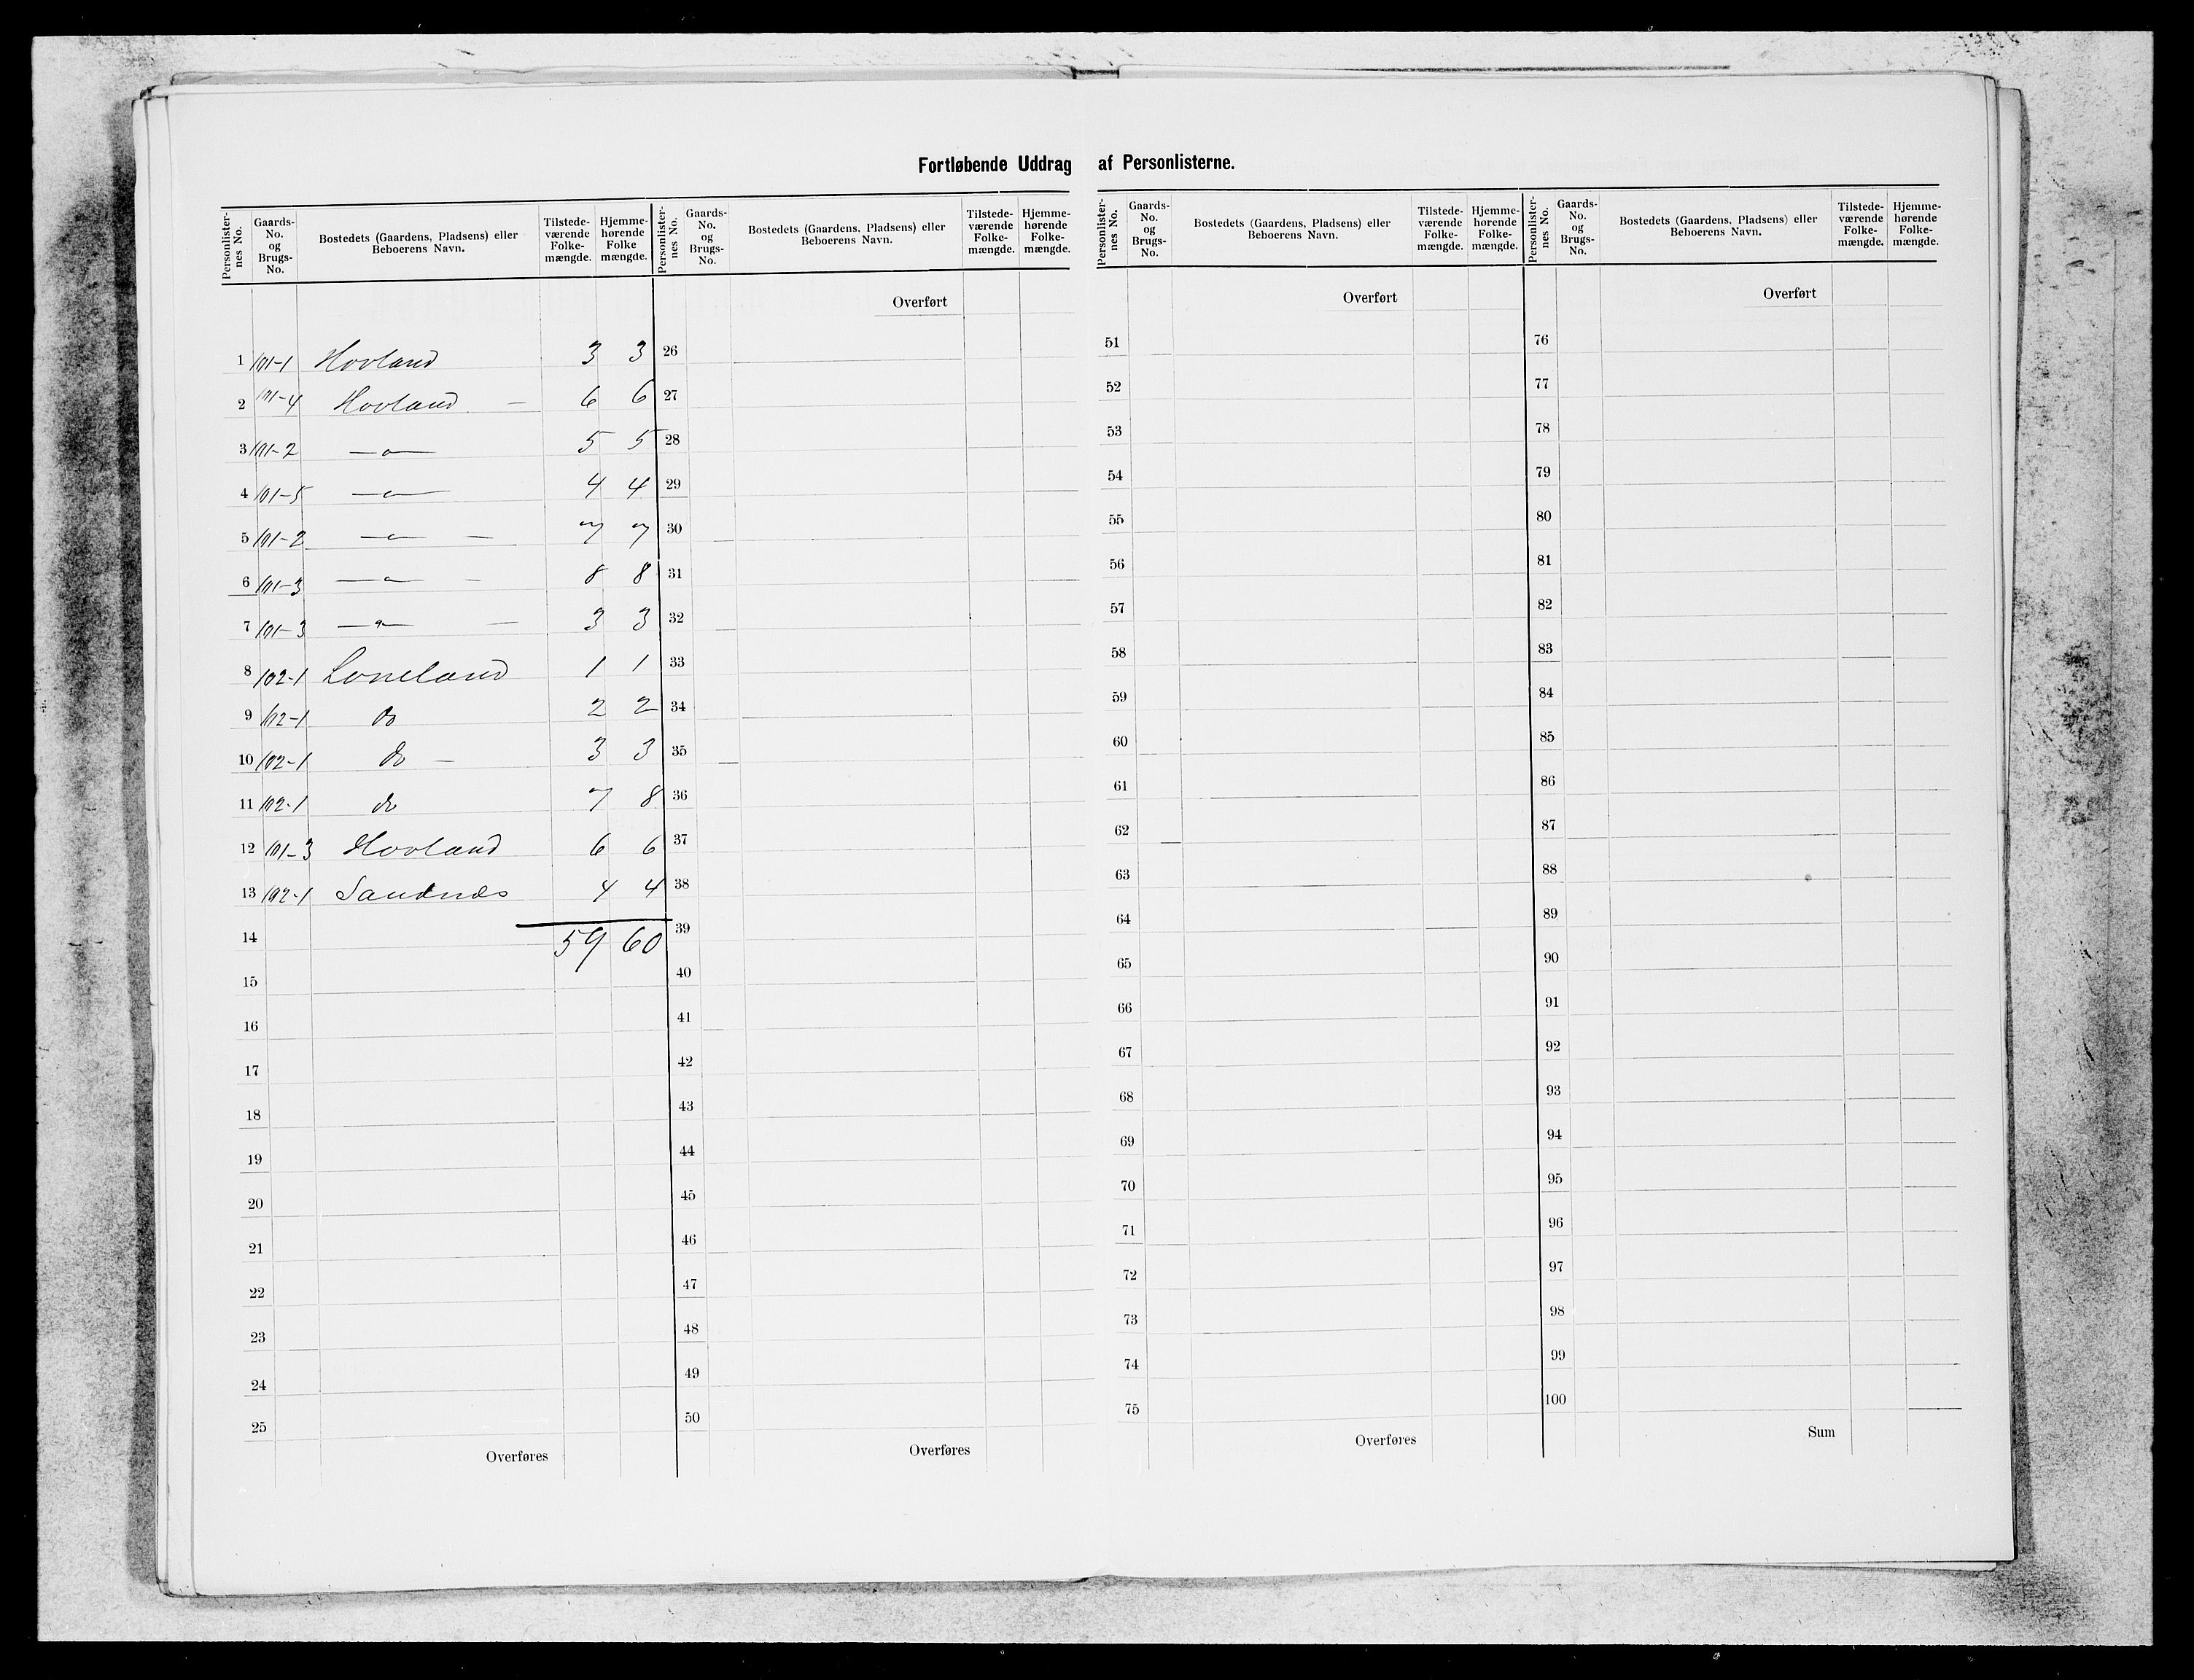 Fortløbende Uddrag af Personlisterne.
Personlister-nes No. Gaards-No. og Brugs-No. Bostedets (Gaardens, Pladsens) eller Beboerens Navn. Tilstede-værende Folke-mængde. Hjemme-hørende Folke mængde.
1 101-1 Hovland 3 3
2 101-4 Hovland - 6 6
3 101-2 —"— 5 5
4 101-5 —"— 4 4
5 101-2 —"— - 7 7
6 101-3 —"— - 8 8
7 101-3 —"— - 3 3
8 102-1 Loneland 1 1
9 102-1 do 2 2
10 102-1 do - 3 3
11 102-1 do 7 8
12 101-3 Hovland 6 6
13 102-1 Sandnes 4 4
14 59 60
15
16
17
18
19
20
21
22
23
24
25
Overføres
Personlister-nes No. Gaards-No. og Brugs-No. Bostedets (Gaardens, Pladsens) eller Beboerens Navn. Tilstede-værende Folke-mængde. Hjemme-hørende Folke-mængde.
Overført
26
27
28
29
30
31
32
33
34
35
36
37
38
39
40
41
42
43
44
45
46
47
48
49
50
Overføres
Personlister-nes No. Gaards-No. og Brugs-No. Bostedets (Gaardens, Pladsens) eller Beboerens Navn. Tilstede-værende Folke-mængde. Hjemme-hørende Folke-mængde.
Overført
51
52
53
54
55
56
57
58
59
60
61
62
63
64
65
66
67
68
69
70
71
72
73
74
75
Overføres
Personlister-nes No. Gaards-No. og Brugs-No. Bostedets (Gaardens, Pladsens) eller Beboerens Navn. Tilstede-værende Folke-mængde. Hjemme-hørende Folke-mængde.
Overført
76
77
78
79
80
81
82
83
84
85
86
87
88
89
90
91
92
93
94
95
96
97
98
99
100
Sum